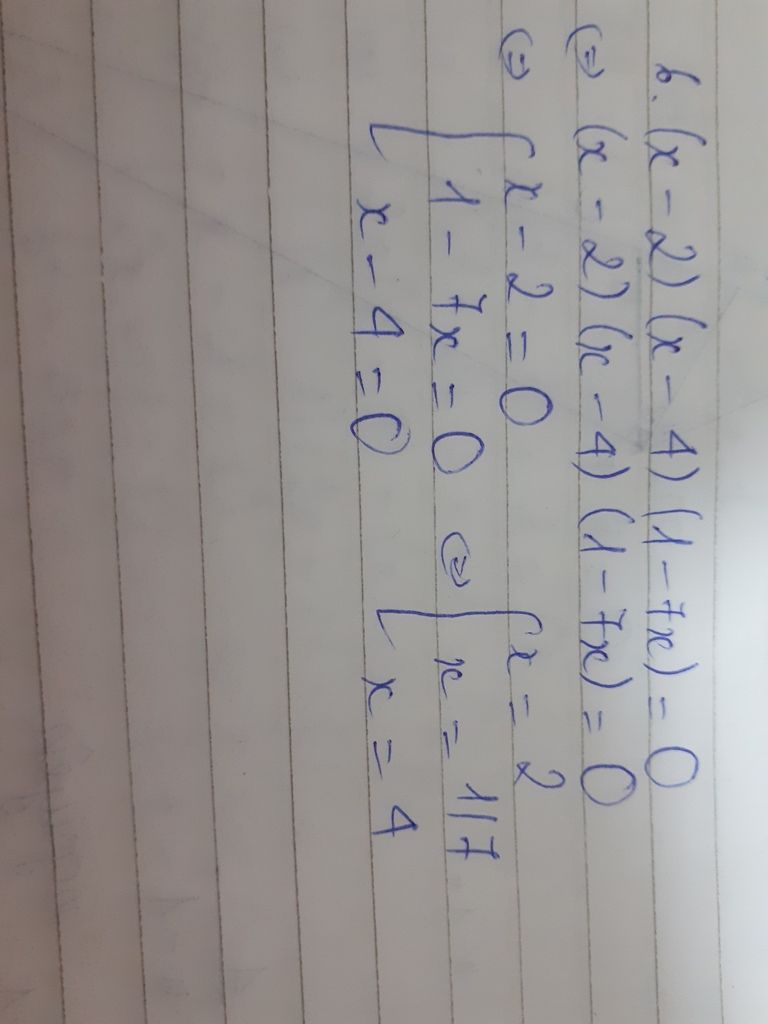 b. (x - 2) (x - 4) (1 - 7x) = 0
⇔ (x - 2) (x - 4) (1 - 7x) = 0
⇔ [ x - 2 = 0
1 - 7x = 0 ⇔ [ x = 2
x - 4 = 0
x = 1/7
x = 4